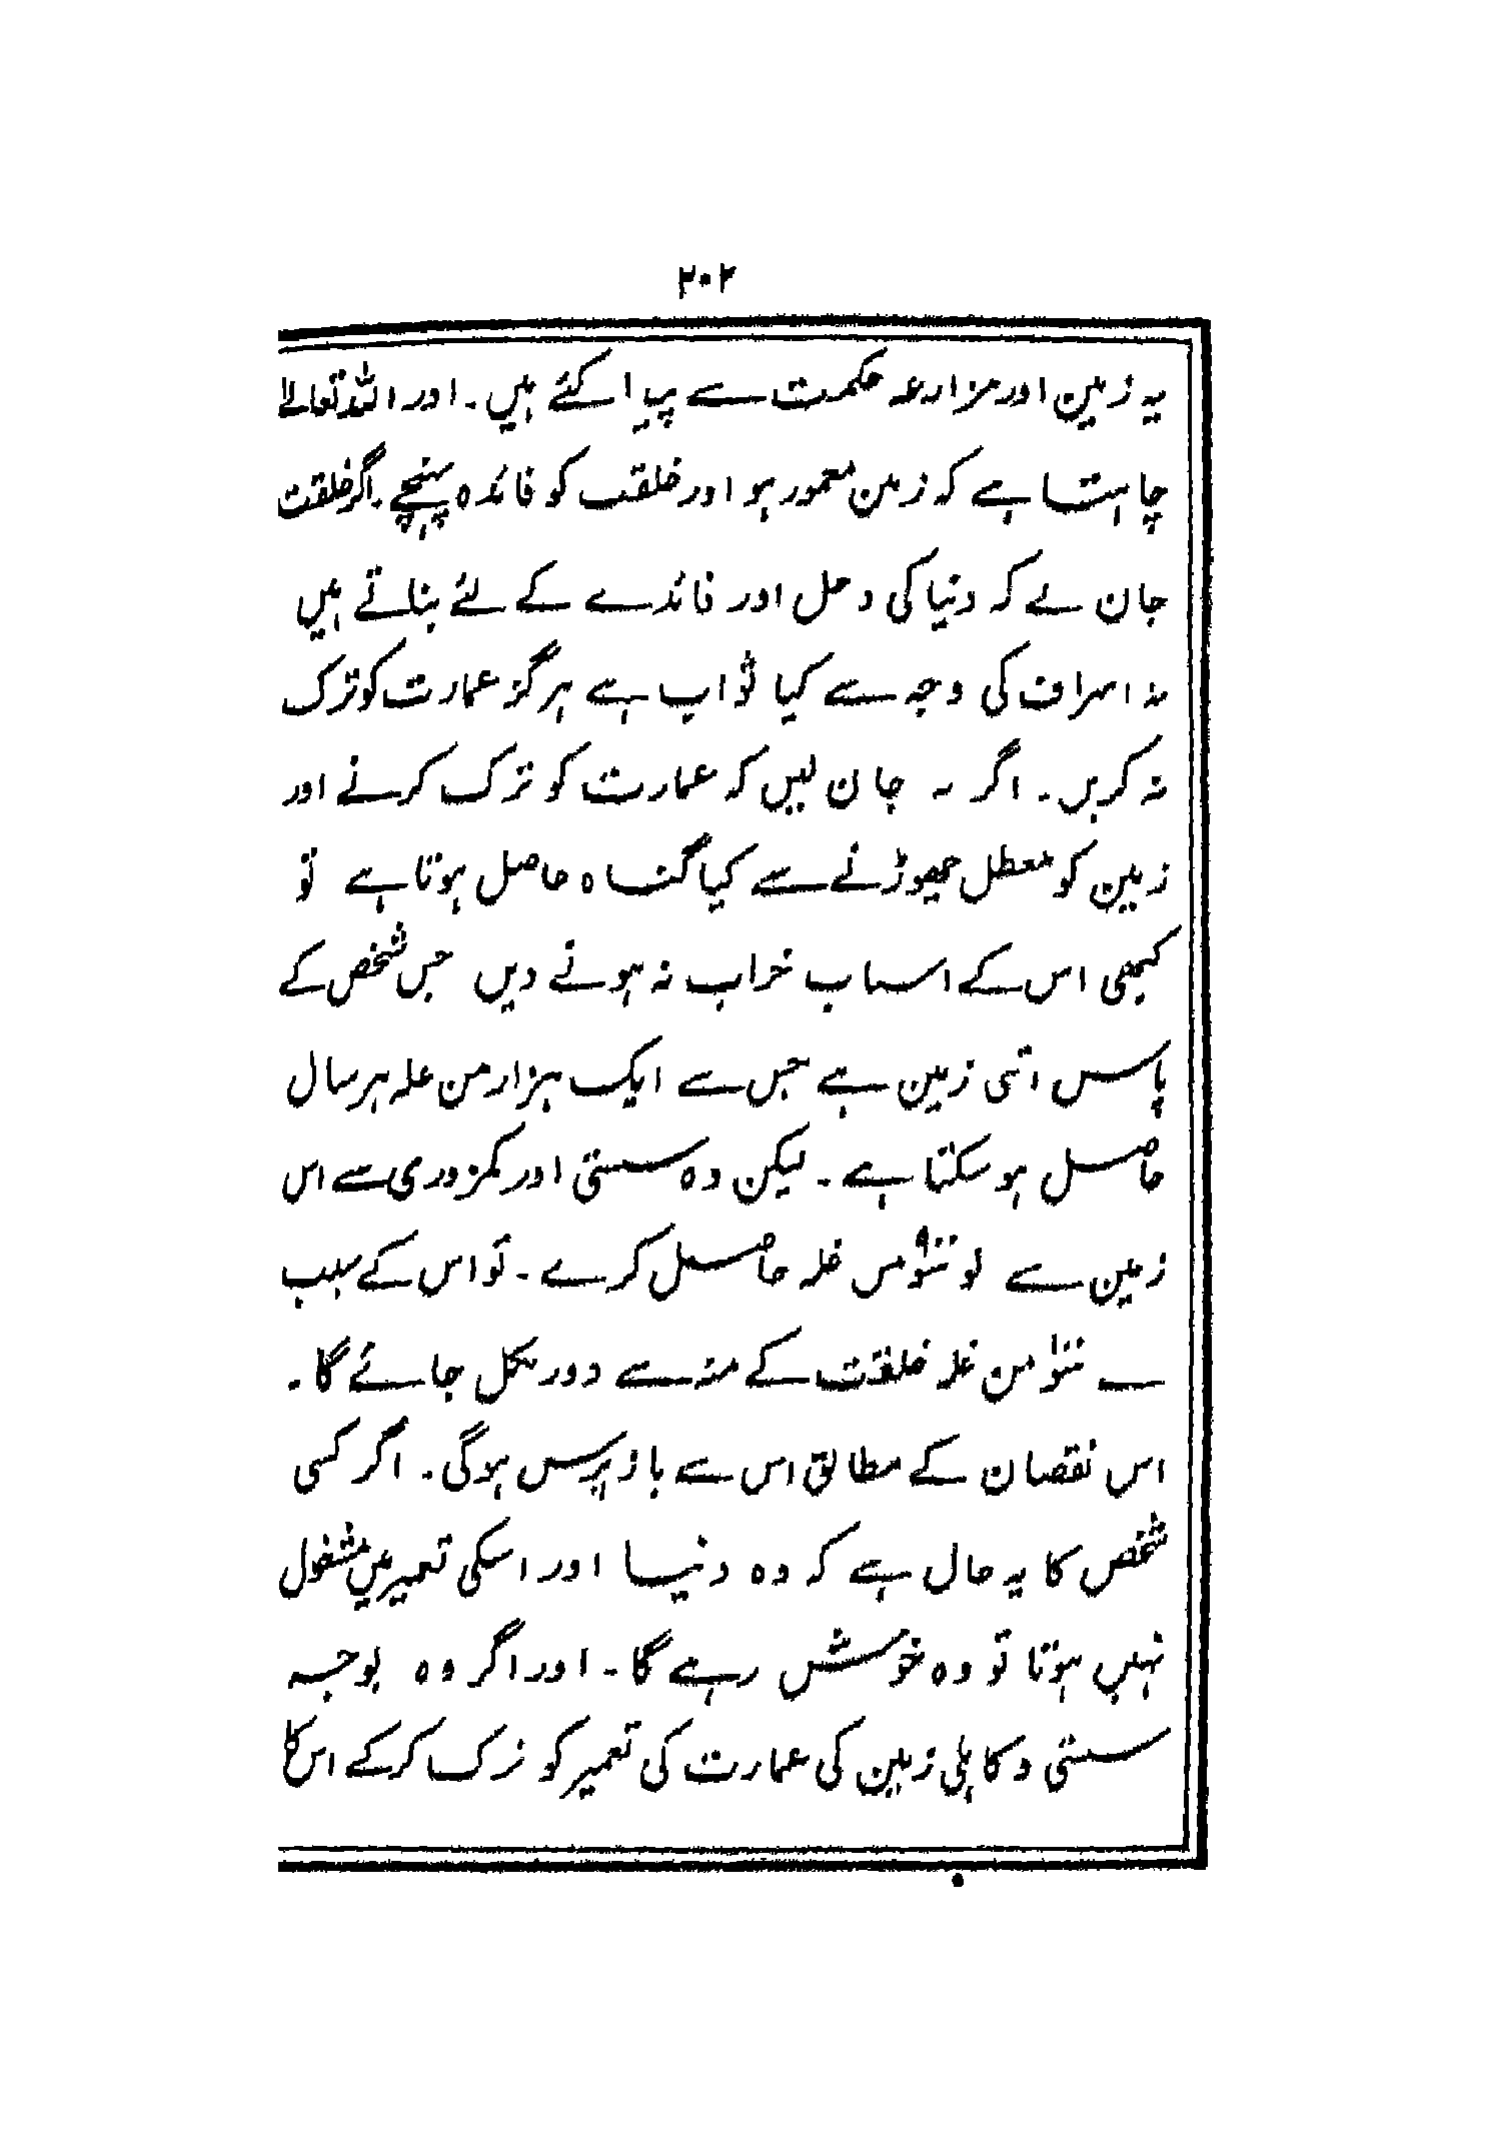 ۲۰۲
یہ زمین اور مزارعہ حکمت سے پیدا کئے ہیں۔ اور اللہ تعالےٰ
چاہتا ہے کہ زمین معمور ہو اور خلقت کو فائدہ پہنچے۔ اگر خلقت
جان لے کہ دنیا کی دخل اور فائدے کے لئے بناتے ہیں
نہ اسراف کی وجہ سے کیا ثواب ہے ہرگز عمارت کو ترک
نہ کریں۔ اگر یہ جان لیں کہ عمارت کو ترک کرنے اور
زمین کو معطل چھوڑنے سے کیا گناہ حاصل ہوتا ہے تو
کبھی اس کے اسباب خراب نہ ہونے دیں جس شخص کے
پاس اتنی زمین ہے جس سے ایک ہزار من غلہ ہر سال
حاصل ہو سکتا ہے۔ لیکن وہ سستی اور کمزوری سے اس
زمین سے نو سَو من غلہ حاصل کرے۔ تو اس کے سبب
سے سَو من غلہ خلقت کے منہ سے دور نکل جائے گا۔
اس نقصان کے مطابق اس سے بازپرس ہوگی۔ اگر کسی
شخص کا یہ حال ہے کہ وہ دنیا اور اسکی تعمیر میں مشغول
نہیں ہوتا تو وہ خوش رہے گا۔ اور اگر وہ بوجہ
سستی و کاہلی زمین کی عمارت کی تعمیر کو ترک کرکے اس کا